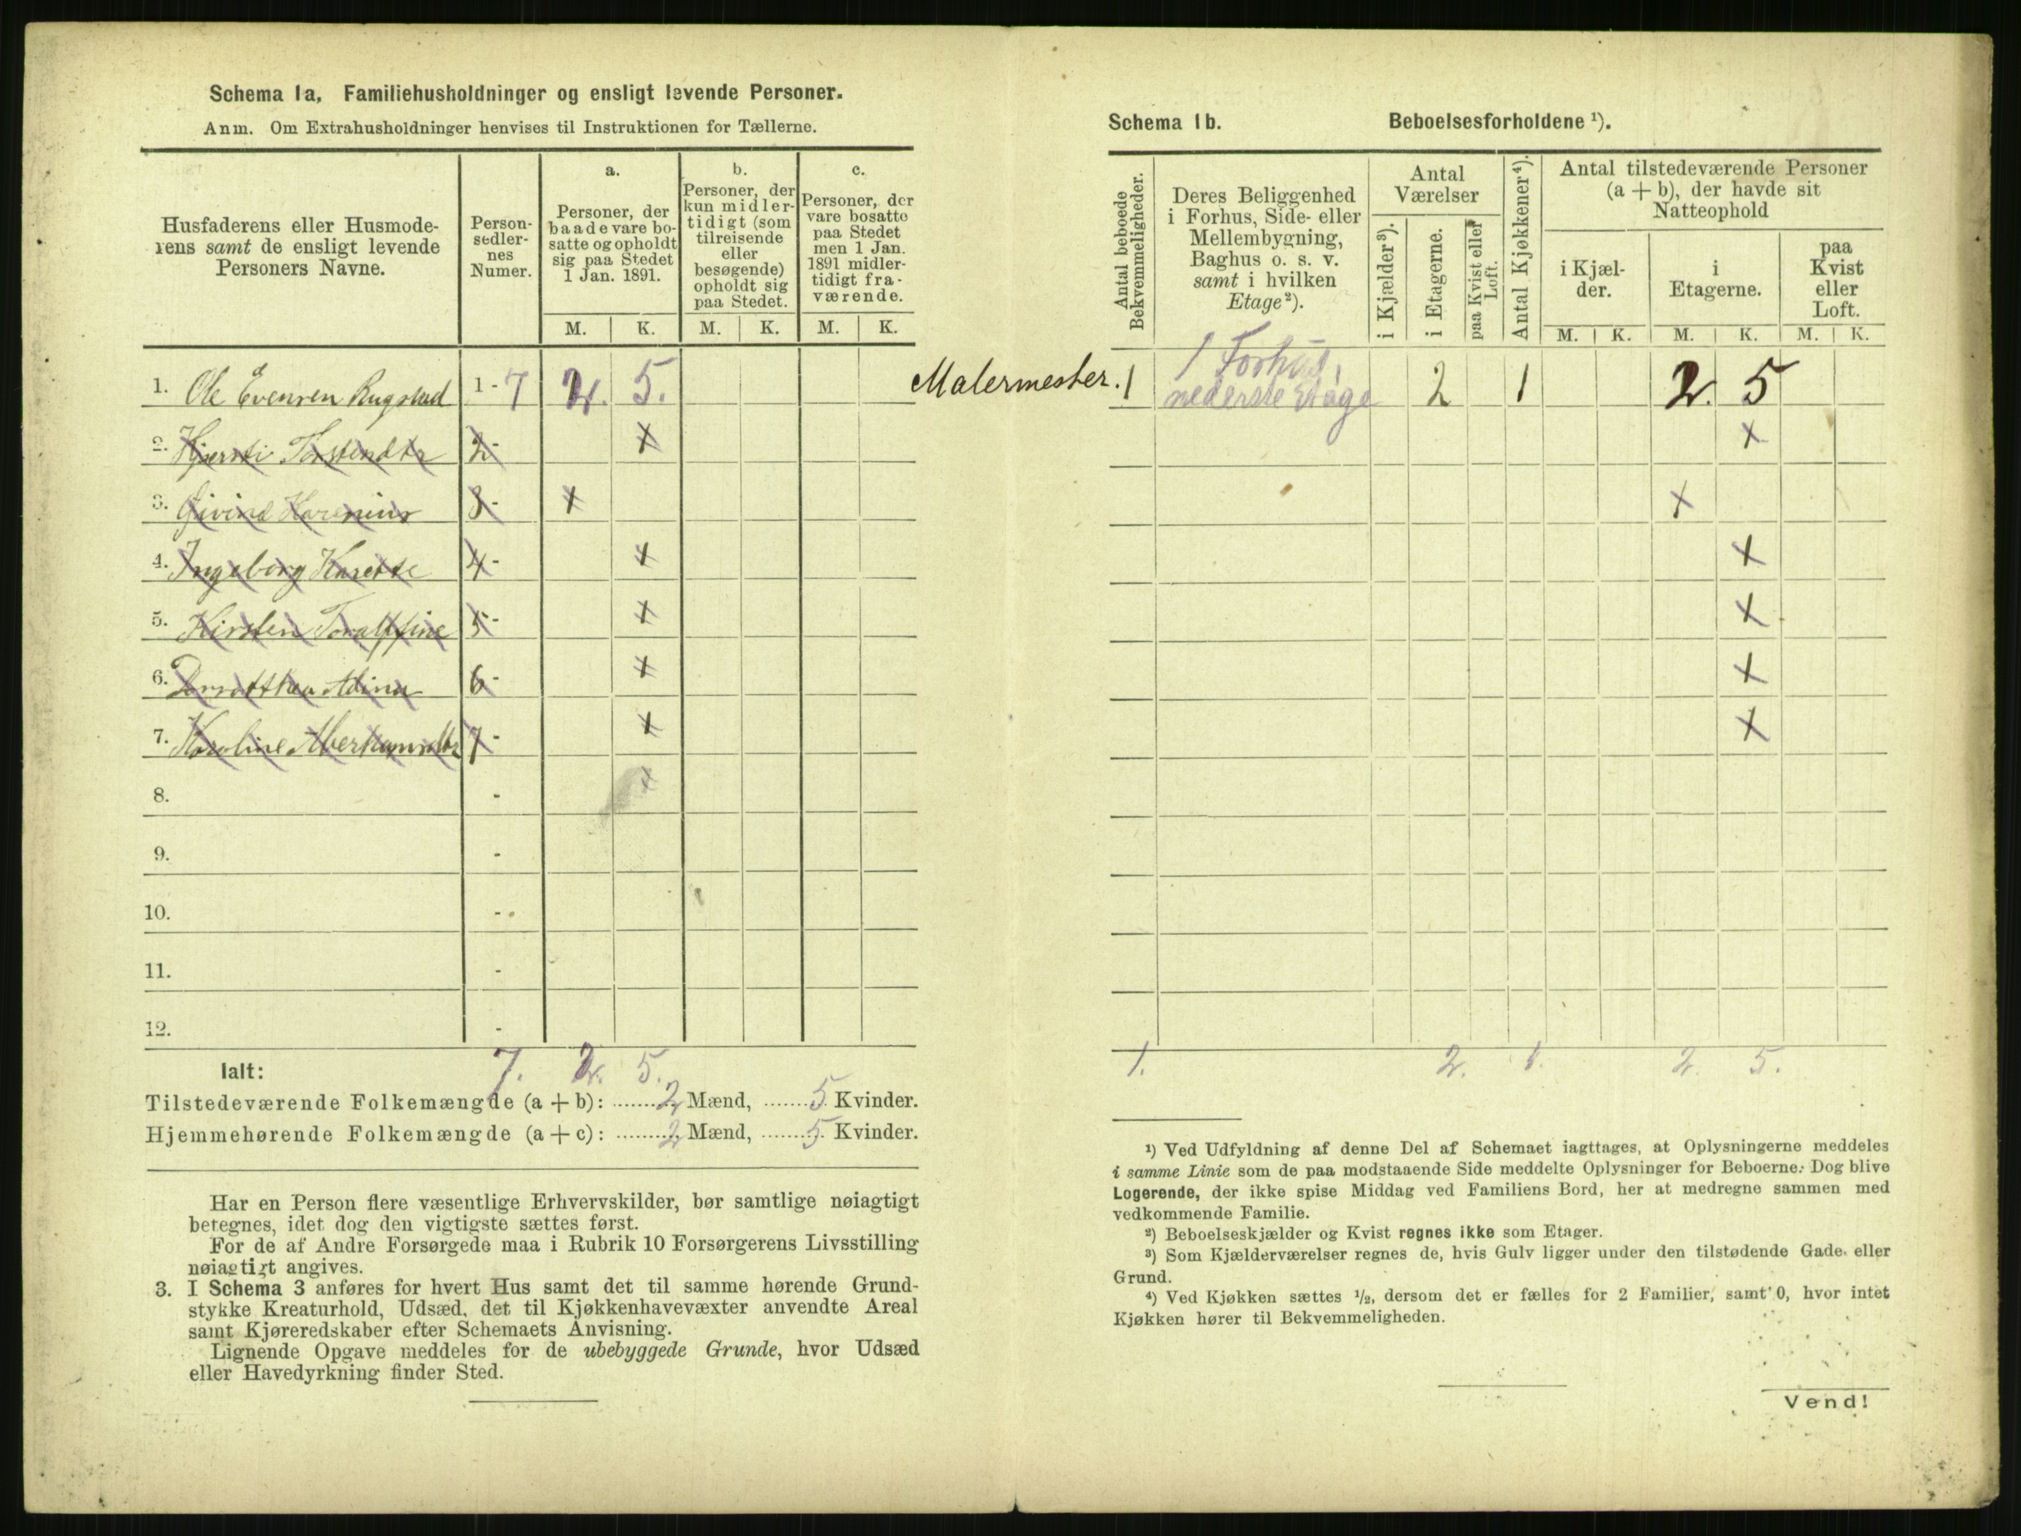 Schema 1a. Familiehusholdninger og ensligt levende Personer.
Anm. Om Extrahusholdninger henvises til Instruktionen for Tællerne.
Husfaderens eller Husmode-
rens samt de ensligt levende
Personers Navne.
Person-
sedler-
nes
Numer.
a.
Personer, der
baade vare bo-
satte og opholdt
sig paa Stedet
1 Jan. 1891.
b.
Personer, der
kun midler-
tidigt (som
tilreisende
eller
besøgende)
opholdt sig
paa Stedet.
c.
Personer, der
vare bosatte
paa Stedet
men 1 Jan.
1891 midler-
tidigt fra-
værende.
M. K. M. K. M. K.
1. Ole Evensen Rugstad 1 - 7 2. 5.
2. Kjersti Torstendtr 2 - x
3. Eivind Harenius 3 - x
4. Ingeborg Karette 4 - x
5. Kirsten Toralffine 5 - x
6. Dorotthea Adina 6 - x
7. Karoline Aberhamsdtr 7 - x
8. - x
9. -
10. -
11. -
12. -
Ialt: 7. 2. 5.
Tilstedeværende Folkemængde (a + b): 2 Mænd, 5 Kvinder.
Hjemmehørende Folkemængde (a + c): 2 Mænd, 5 Kvinder.
Har en Person flere væsentlige Erhvervskilder, bør samtlige nøiagtigt
betegnes, idet dog den vigtigste sættes først.
For de af Andre Forsørgede maa i Rubrik 10 Forsørgerens Livsstilling
nøiagtigt angives.
3. I Schema 3 anføres for hvert Hus samt det til samme hørende Grund-
stykke Kreaturhold, Udsæd, det til Kjøkkenhavevæxter anvendte Areal
samt Kjøreredskaber efter Schemaets Anvisning.
Lignende Opgave meddeles for de ubebyggede Grunde, hvor Udsæd
eller Havedyrkning finder Sted.
Schema 1b. Beboelsesforholdene ¹).
Antal beboede
Bekvemmeligheder.
Deres Beliggenhed
i Forhus, Side- eller
Mellembygning,
Baghus o. s. v.
samt i hvilken
Etage ²).
Antal
Værelser
i Kjælder ³).
i Etagerne.
paa Kvist eller
Loft.
Antal Kjøkkener ⁴).
Antal tilstedeværende Personer
(a + b), der havde sit
Natteophold
i Kjæl-
der.
i
Etagerne.
paa
Kvist
eller
Loft.
M. K. M. K. M. K.
Malermester. 1 1 Forhus, 2 1 2. 5
nederste Etage
x
x
x
x
x
x
1. 2. 1. 2. 5.
¹) Ved Udfyldning af denne Del af Schemaet iagttages, at Oplysningerne meddeles
i samme Linie som de paa modstaaende Side meddelte Oplysninger for Beboerne. Dog blive
Logerende, der ikke spise Middag ved Familiens Bord, her at medregne sammen med
vedkommende Familie.
²) Beboelseskjælder og Kvist regnes ikke som Etager.
³) Som Kjælderværelser regnes de, hvis Gulv ligger under den tilstødende Gade eller
Grund.
⁴) Ved Kjøkken sættes ½, dersom det er fælles for 2 Familier, samt 0, hvor intet
Kjøkken hører til Bekvemmeligheden.
Vend!